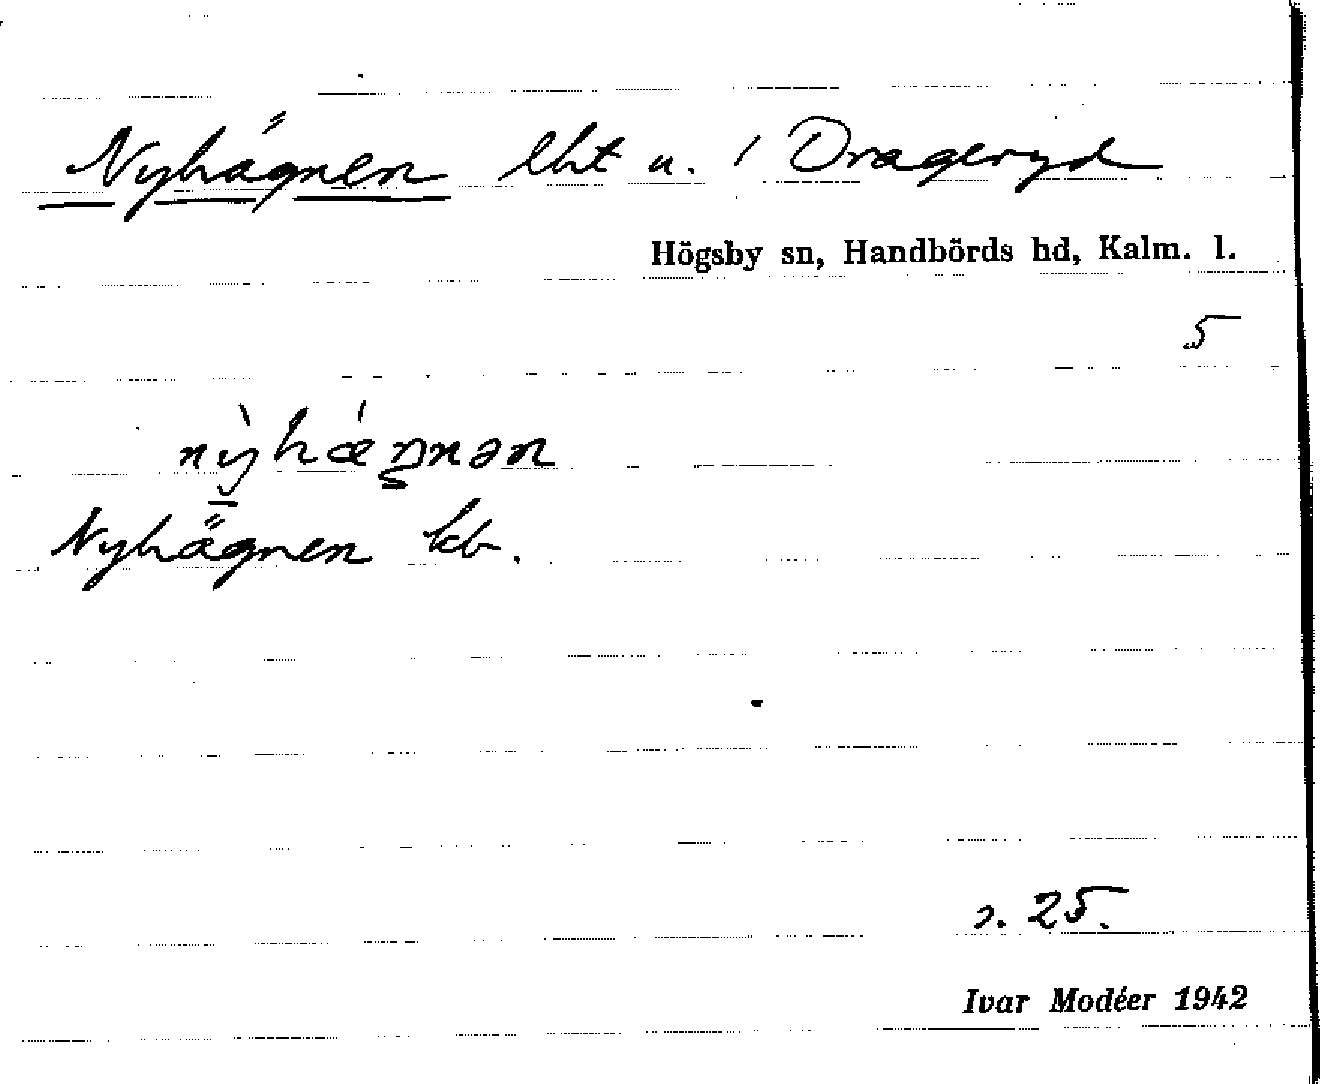 Nyhägnen lht u. / Drageryd
Högsby sn, Handbörds hd, Kalm. l.
5
nỳhǽŋnən
Nyhägnen kb.
s. 25.
Ivar Modéer 1942